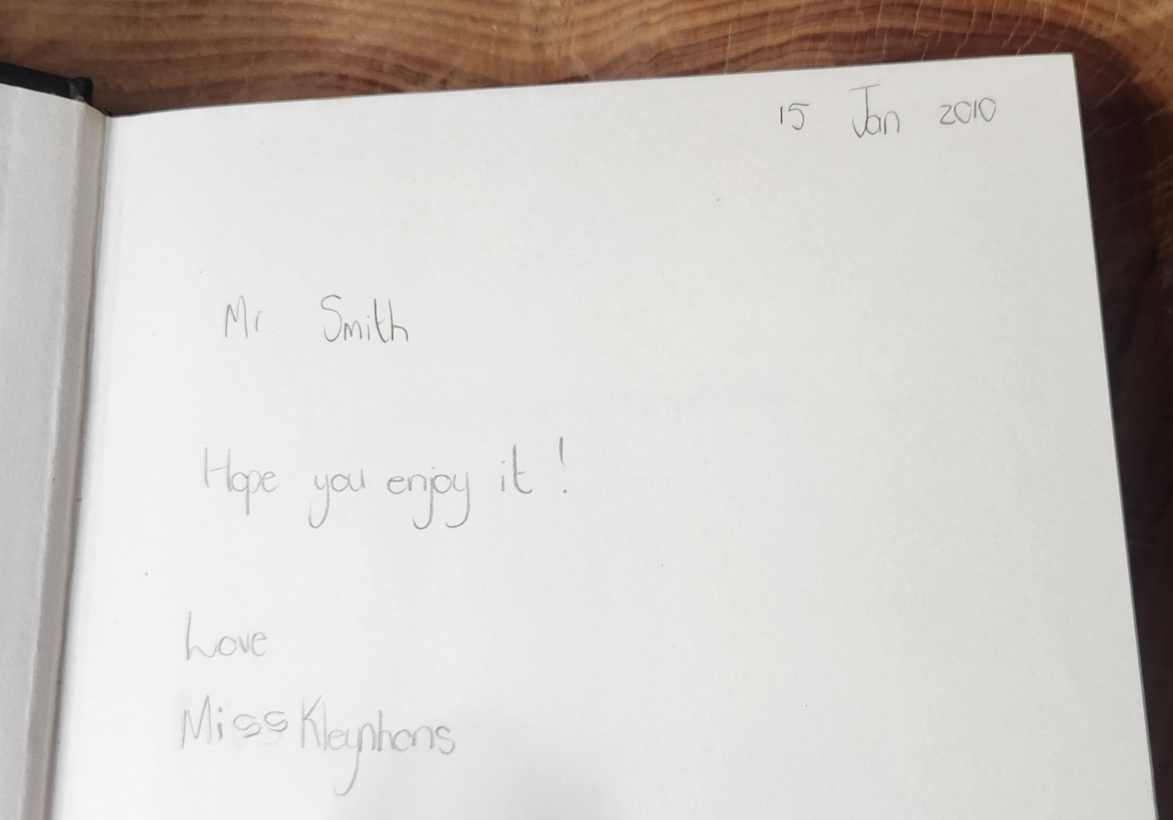 15 Jan 2010
Mr Smith
Hope you enjoy it!
Love
Miss Kleynhans